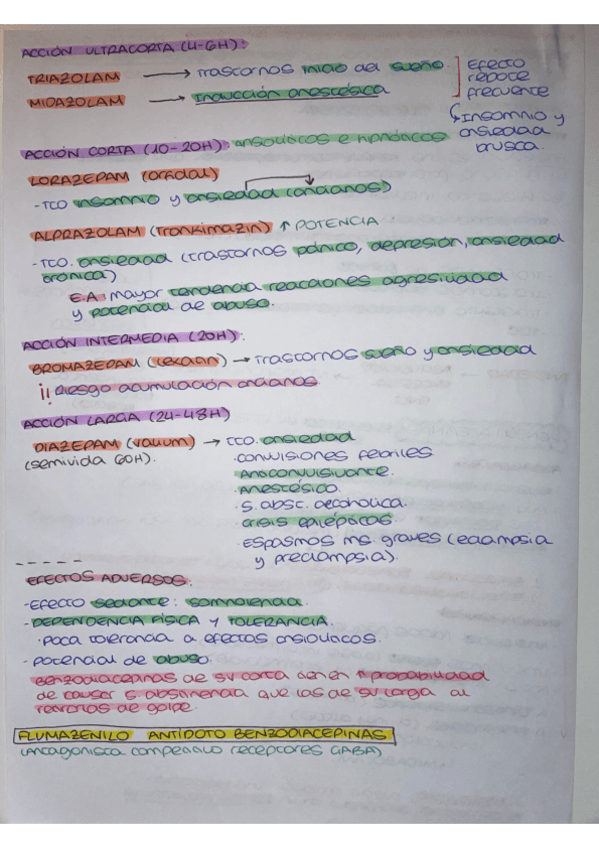 ACCIÓN ULTRACORTA (4-6H):
TRIAZOLAM → Trastornos inicio del sueño
MIDAZOLAM → Inducción anestésica
Efecto
rebote
frecuente
↳ Insomnio y
ansiedad
brusca.
ACCIÓN CORTA (10-20H): ansiolíticos e hipnóticos
LORAZEPAM (orfidal)
-TTO insomnio y ansiedad (ancianos)
ALPRAZOLAM (Trankimazin) ↑ POTENCIA
-TTO. ansiedad (trastornos pánico, depresión, ansiedad
crónica)
E.A: mayor tendencia reacciones agresividad
y potencial de abuso.
ACCIÓN INTERMEDIA (20H):
BROMAZEPAM (Lexatin) → Trastornos sueño y ansiedad
¡¡ Riesgo acumulación ancianos.
ACCIÓN LARGA (24-48H)
DIAZEPAM (valium) → TTO. ansiedad
(semivida 60H).
·convulsiones febriles
·Anticonvulsivante.
·Anestésico.
·S. absc. alcohólica.
·crisis epilépticas.
·ESPASMOS ms. graves (eclampsia
y preclampsia).
-----
EFECTOS ADVERSOS:
-Efecto sedante: somnolencia.
-DEPENDENCIA FÍSICA Y TOLERANCIA.
·Poca tolerancia a efectos ansiolíticos.
- potencial de abuso.
Benzodiacepinas de su corta tienen ↑ probabilidad
de causar s. abstinencia que las de su larga al
retirarlos de golpe.
FLUMAZENILO ANTÍDOTO BENZODIACEPINAS
(Antagonista competitivo receptores GABA)